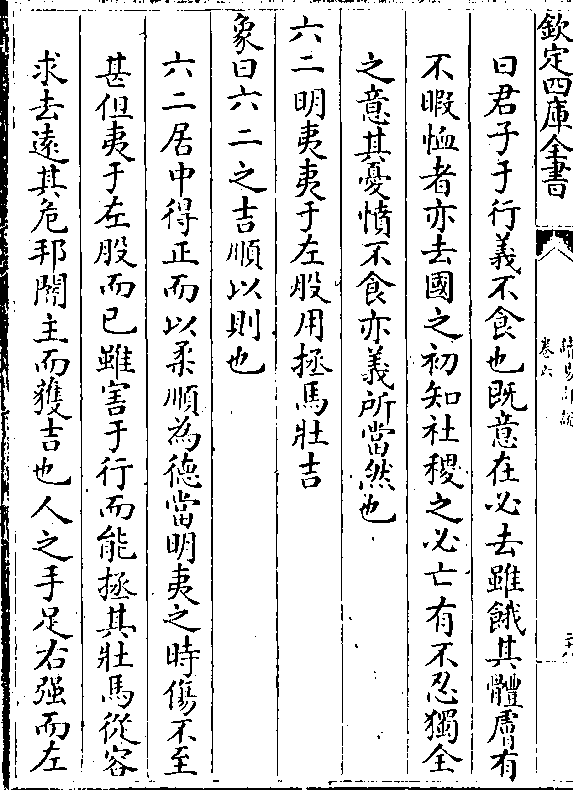 欽定四庫全書
讀易日說
卷六
曰君子于行義不食也既意在必去雖餓其體膚有
不暇恤者亦去國之初知社稷之必亡有不忍獨全
之意其憂憤不食亦義所當然也
六二明夷夷于左股用拯馬壯吉
象曰六二之吉順以則也
六二居中得正而以柔順為德當明夷之時傷不至
甚但夷于左股而已雖害于行而能拯其壯馬從容
求去遠其危邦闇主而獲吉也人之手足右强而左